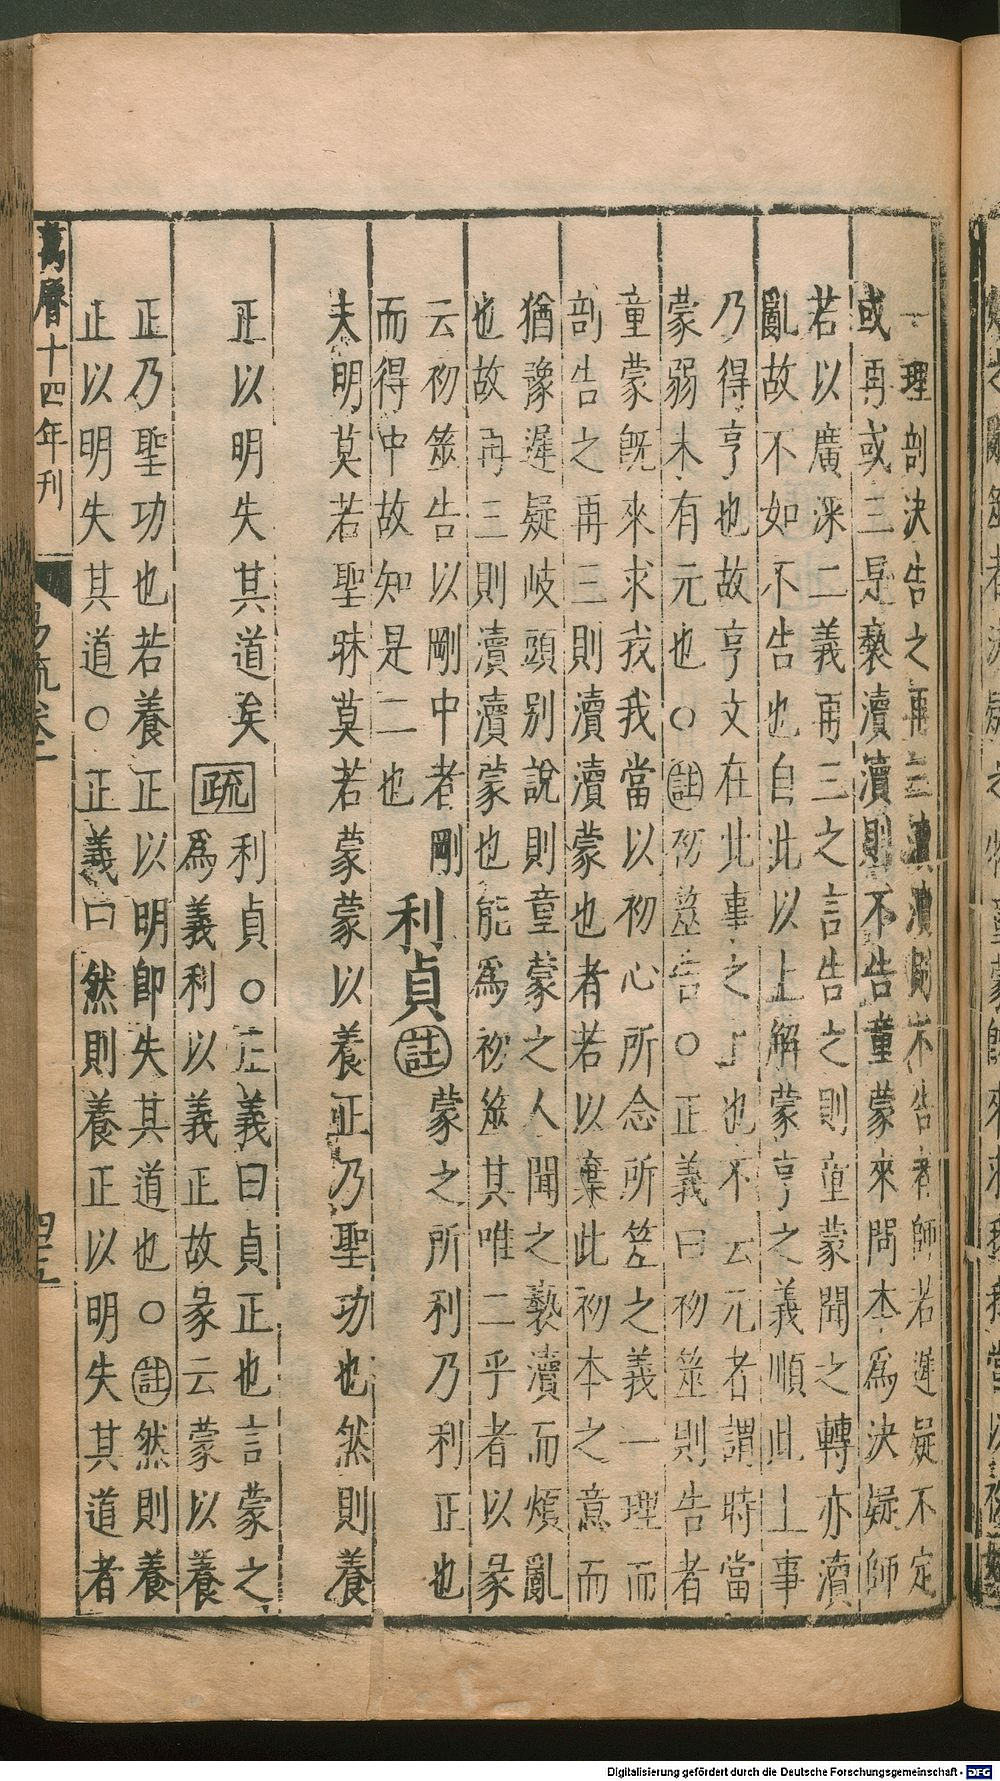 一理剖決告之再三瀆瀆則不告者師若遲疑不定
或再或三是褻瀆瀆則不告童蒙來問本爲決疑師
若以廣深二義再三之言告之則童蒙聞之轉亦瀆
亂故不如不告也自此以上解蒙亨之義順此上事
乃得亨也故亨文在此事之下也不云元者謂時當
蒙弱未有元也○註初筮告○正義曰初筮則告者
童蒙旣來求我我當以初心所念所筮之義一理而
剖告之再三則瀆瀆蒙也者若以棄此初本之意而
猶豫遲疑岐頭別說則童蒙之人聞之褻瀆而煩亂
也故再三則瀆瀆蒙也能爲初筮其唯二乎者以彖
云初筮告以剛中者剛
而得中故知是二也
利貞註蒙之所利乃利正也
夫明莫若聖昧莫若蒙蒙以養正乃聖功也然則養
正以明失其道矣
疏利貞○正義曰貞正也言蒙之
爲義利以義正故彖云蒙以養
正乃聖功也若養正以明卽失其道也○註然則養
正以明失其道○正義曰然則養正以明失其道者
萬曆十四年刊
易疏卷二
Digitalisierung gefördert durch die Deutsche Forschungsgemeinschaft - DFG